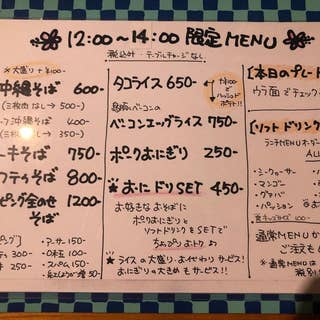 12:00〜14:00 限定MENU
税込み・テーブルチャージなし
*大盛り+¥100-
沖縄そば 600-
(三枚肉なし→ 500-)
沖縄そば 400-
(三枚肉なし→ 350-)
キそば 750-
フティそば 800-
ピング全のせそば 1200-
ピング]
・アーサ 150-
300 ・玉 100-
・スパム 150-
250
タコライス 650-
ベーコンの
ベーコンエッグライス 750-
ポークおにぎり 250-
★おにドリSET 450-
お好きなおそばに
ポークおにぎりと
ソフトドリンクをSETで
ちょっぴりおトク♪
★ライスの大盛り・おかわりサービス!
おにぎりの大きめもサービス!!
+¥100で
【本日のプレート
ウラ面でチェック
【ソフトドリンク
ランチMENUオーダー
ALL
・シークヮーサー
・マンゴー
・グァバ
・パッション
通常MENUか
ご注文も
*通常MENUは
税別